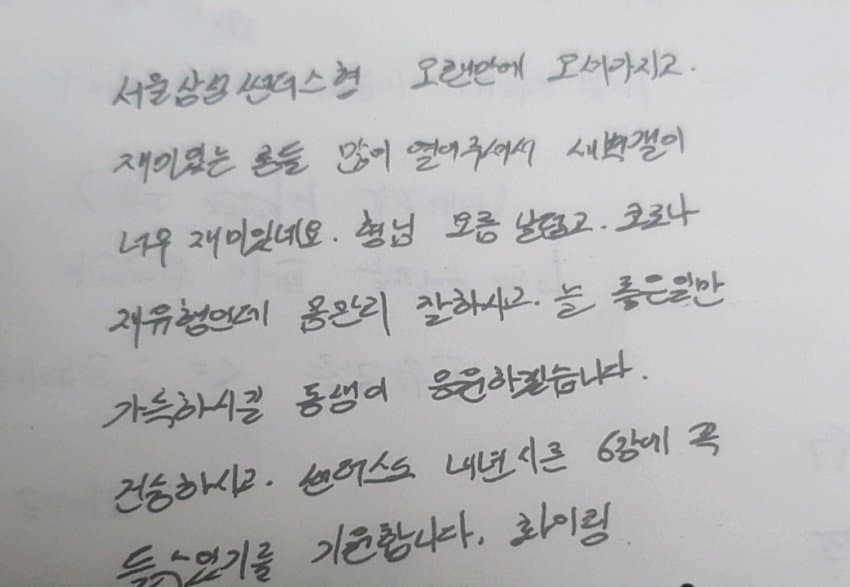 서울삼성썬더스형 오랜만에 오셔가지고.
재미있는 론들 많이 열어주셔서 새벽갤이
너무 재미있네요. 형님 요즘 날덥고. 코로나
재유행인데 몸관리 잘하시고. 늘 좋은일만
가득하시길 동생이 응원하겠습니다.
건승하시고. 썬더스도 내년시즌 6강에 꼭
들수있기를 기원합니다. 화이링